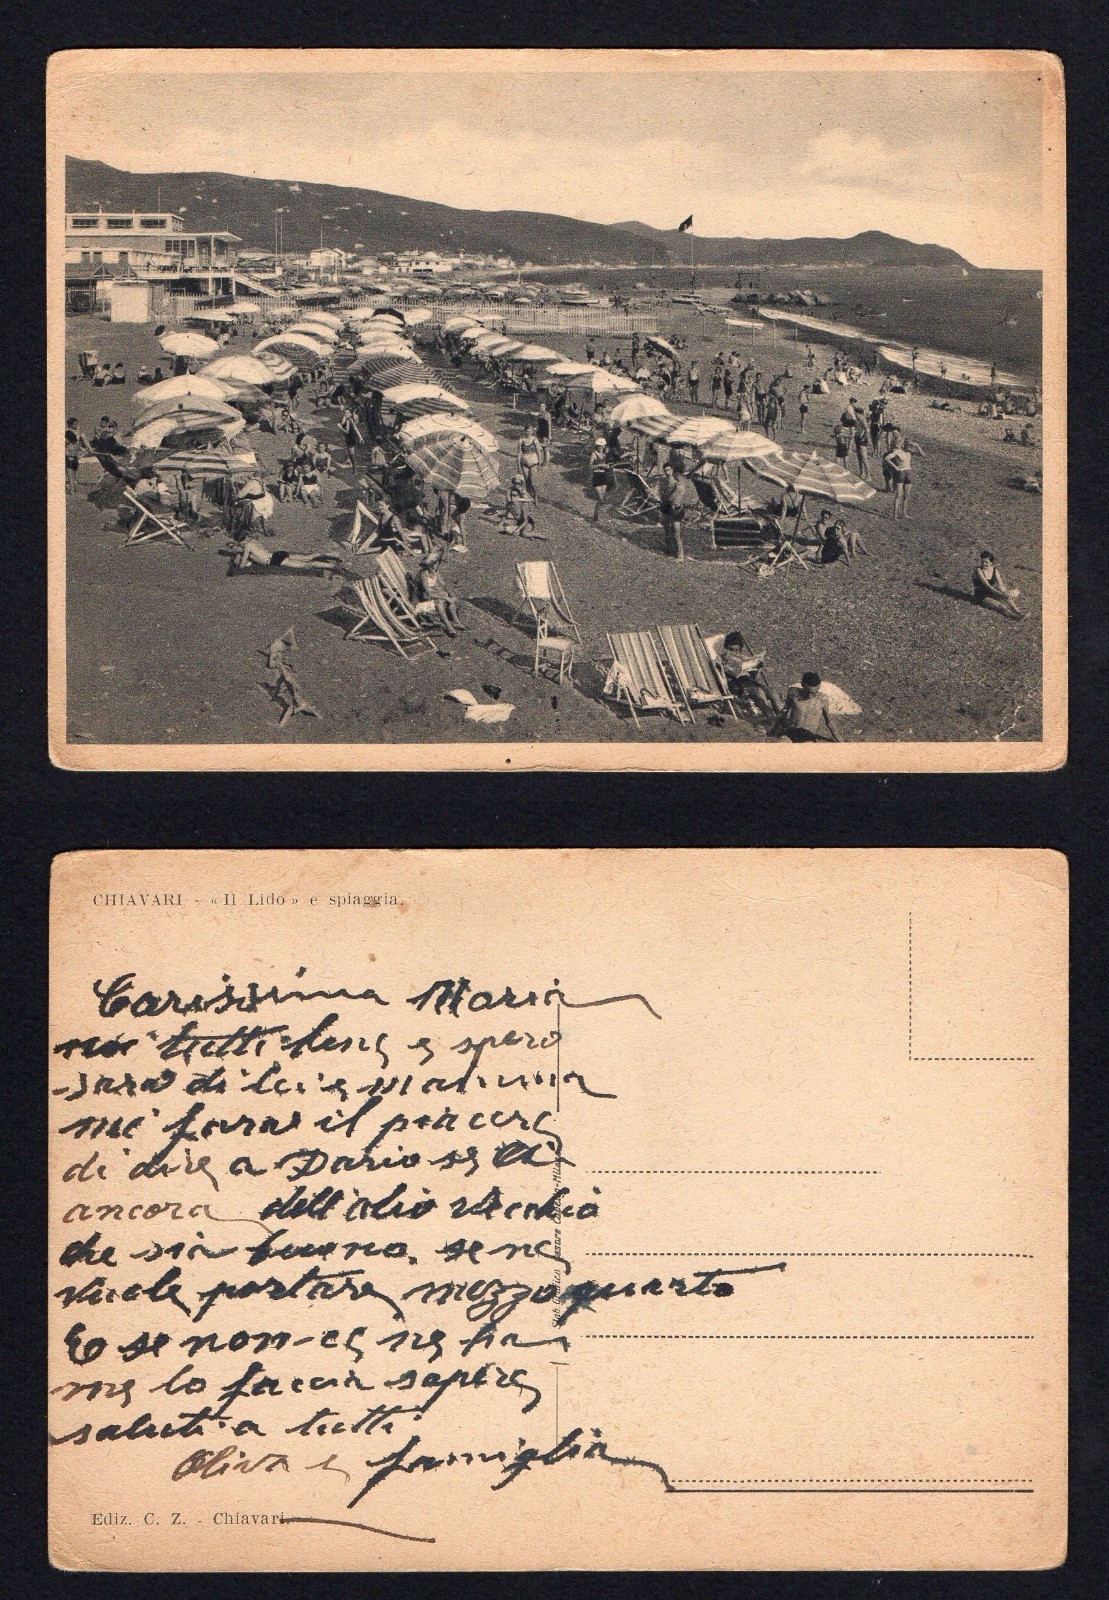 CHIAVARI - «Il Lido» e spiaggia.
Carissima Maria
noi tutti bene e spero
sara di lei e mamma
mi fara il piacere
di dire a Dario se a
ancora dell'olio vecchio
che sia buono. se ne
vuole portare mezzo quarto
E se non ce ne ha
me lo faccia sapere
saluti a tutti
Oliva e famiglia
Ediz. C. Z. - Chiavari.